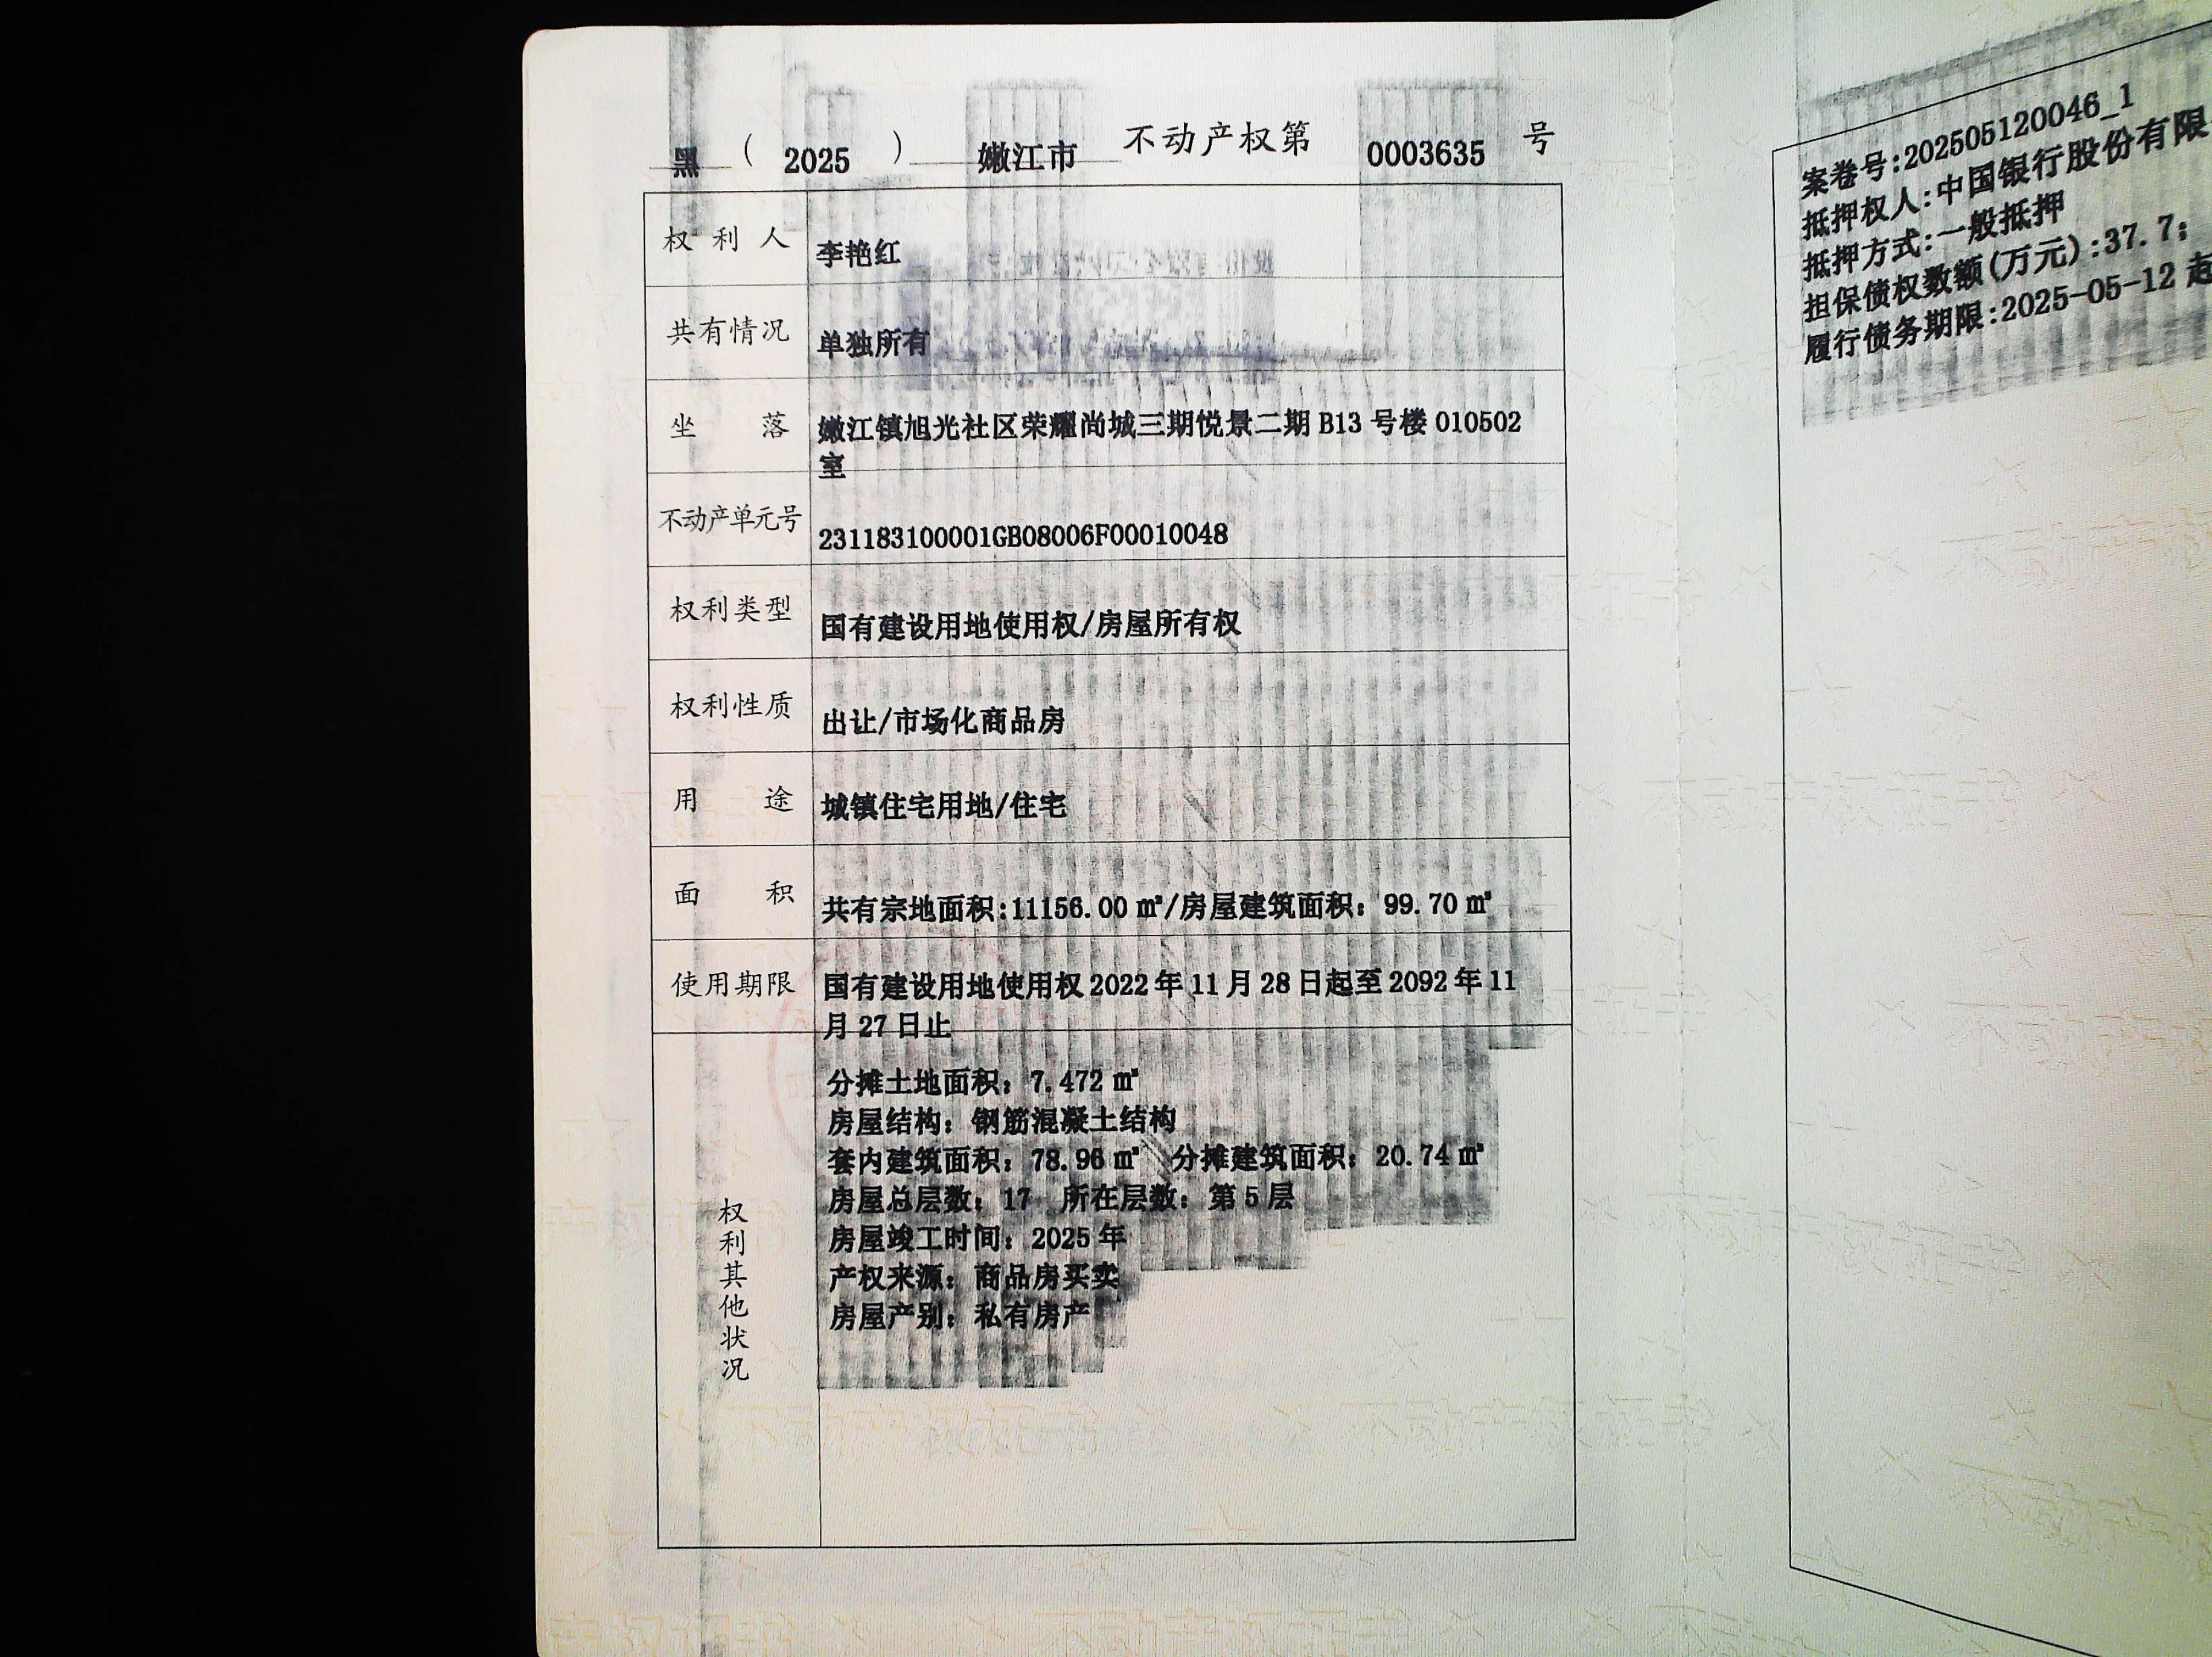 黑 ( 2025 ) 嫩江市 不动产权第 0003635 号
权利人 李艳红
共有情况 单独所有
坐落 嫩江镇旭光社区荣耀尚城三期悦景二期 B13 号楼 010502
室
不动产单元号 231183100001GB08006F00010048
权利类型 国有建设用地使用权/房屋所有权
权利性质 出让/市场化商品房
用途 城镇住宅用地/住宅
面积 共有宗地面积:11156.00 ㎡/房屋建筑面积：99.70 ㎡
使用期限 国有建设用地使用权 2022 年 11 月 28 日起至 2092 年 11
月 27 日止
权利其他状况
分摊土地面积：7.472 ㎡
房屋结构：钢筋混凝土结构
套内建筑面积：78.96 ㎡ 分摊建筑面积：20.74 ㎡
房屋总层数：17 所在层数：第 5 层
房屋竣工时间：2025 年
产权来源：商品房买卖
房屋产别：私有房产
案卷号:202505120046_1
抵押权人:中国银行股份有限
抵押方式:一般抵押
担保债权数额(万元):37.7;
履行债务期限:2025-05-12 起